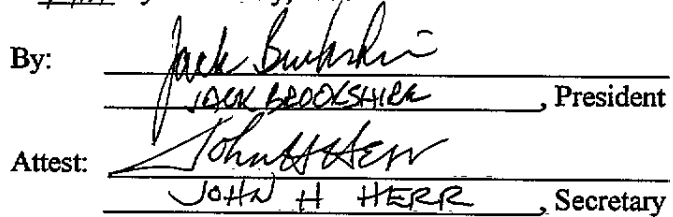 By: Jack Brookshire
JACK BROOKSHIRE, President
Attest: John H Herr
JOHN H HERR, Secretary